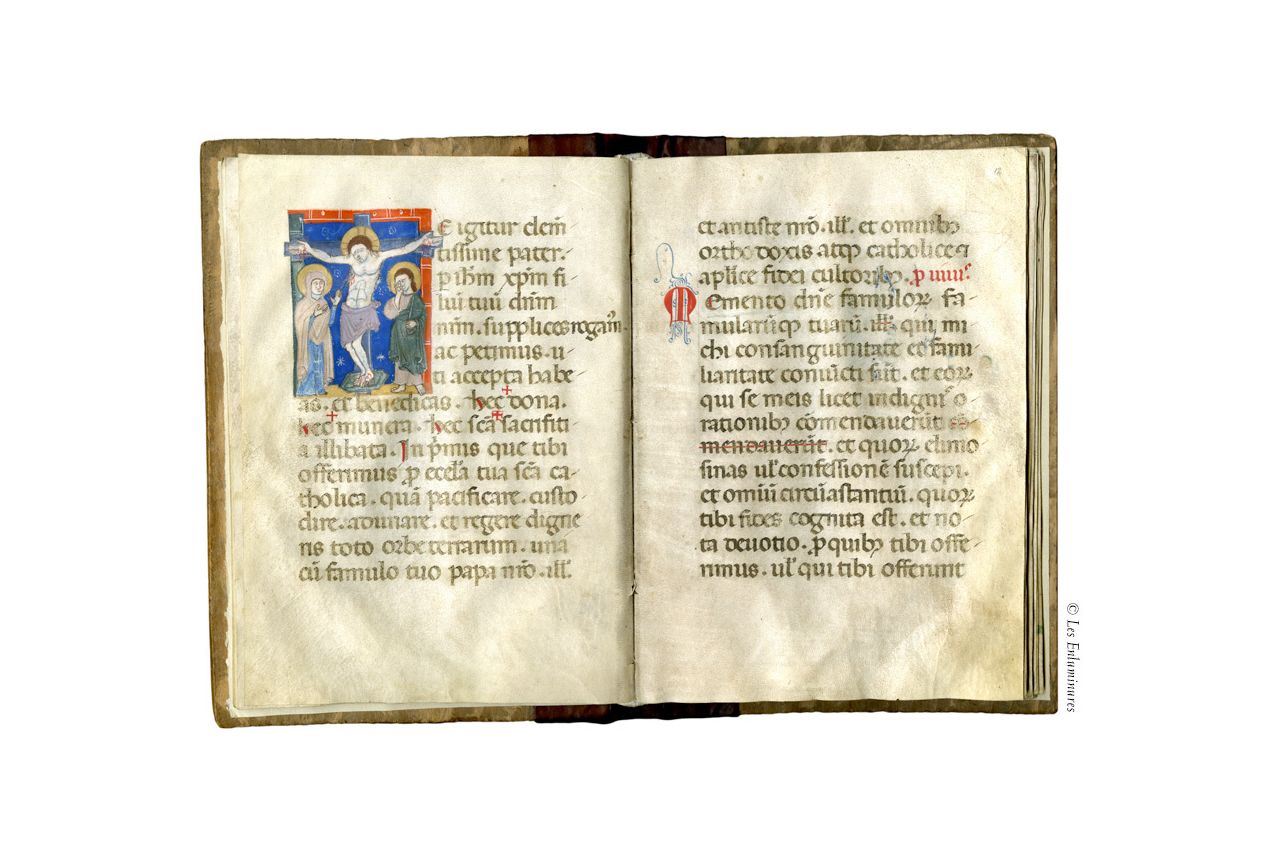 E igitur clem̄
tissime pater.
p ih̄m xp̄m fi
lui tuū dn̄m
nrm̄. supplices rogam̄.
ac petimus. u
ti accepta habe
as. et benedicas. hec dona.
hec munera. hec sc̄a sacrifiti
a illibata. In p̄mis que tibi
offerimus p̄ eccl̄a tua sc̄a ca
tholica. quā pacificare. custo
dire. adunare. et regere digne
ris toto orbe terrarum. una
cū famulo tuo papa nr̄o. ill̄.
et antiste nr̄o. ill̄. et omnibꝫ
orthodoxis atqꝫ catholice ⁊
aplīce fidei cultoribꝫ. p̄ uiuis
M emento dn̄e famuloꝝ fa
mularūqꝫ tuarū. ill̄. qui mi
chi consanguinitate et fami
liaritate coniūcti sūt. et eoꝝ
qui se meis licet indignis o
rationibꝫ cōmendauerūt
mendauerūt. et quoꝝ elimo
sinas ul̄ confessionē suscepi.
et omiū circūastantiū. quoꝝ
tibi fides cognita est. et no
ta deuotio. p̄ quibꝫ tibi offe
rimus. ul̄ qui tibi offerunt
© Les Enluminures